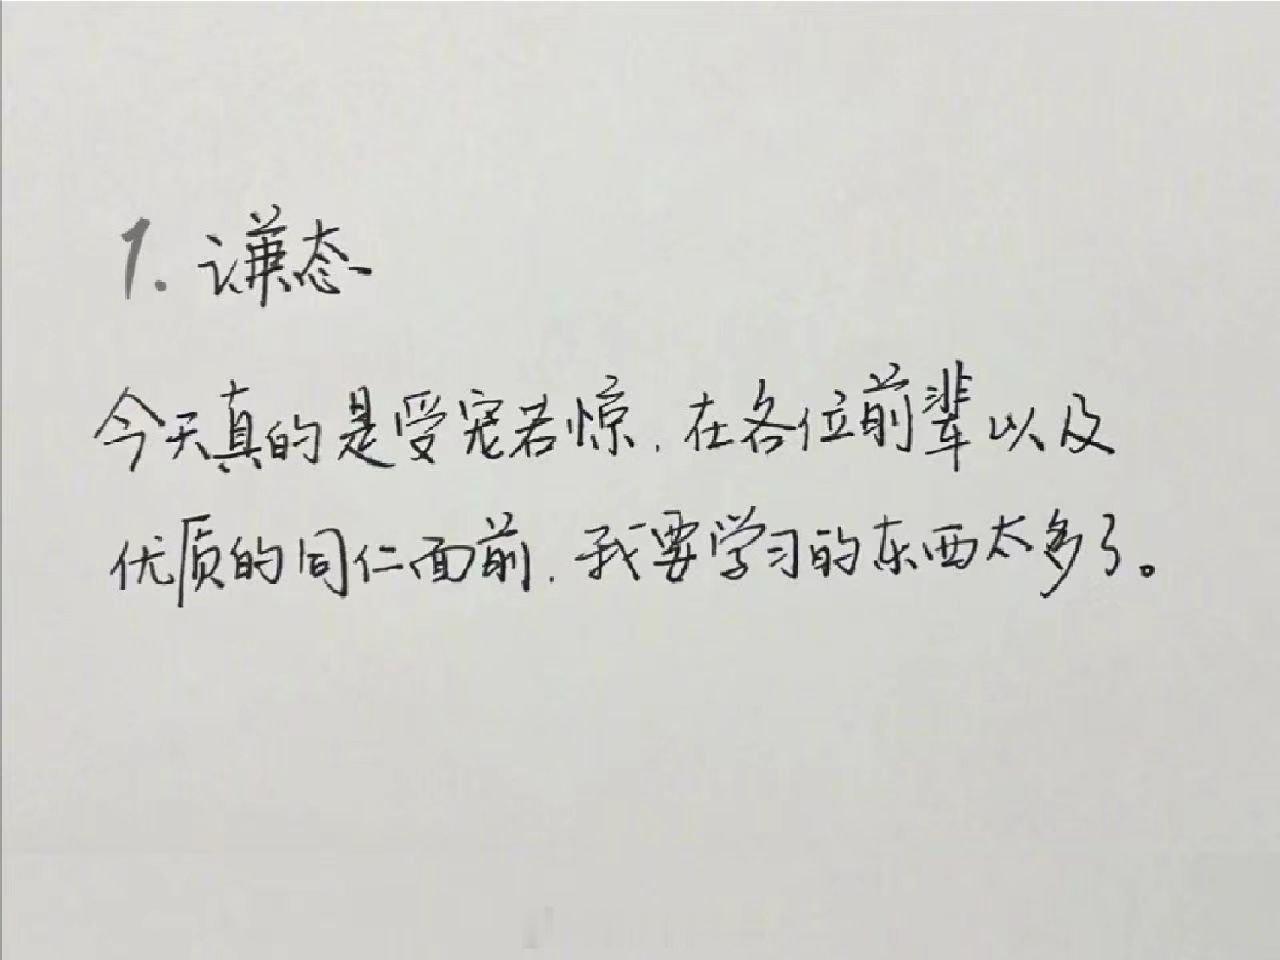 1. 谦态
今天真的是受宠若惊,在各位前辈以及
优质的同仁面前,我要学习的东西太多了。